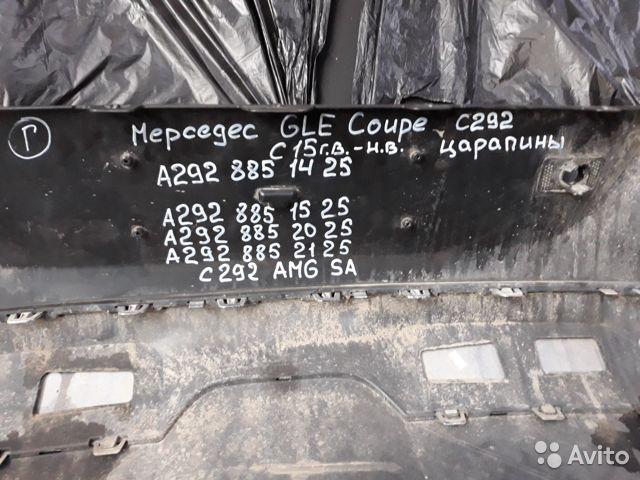 Г
Мерседес GLE Coupe C292
с 15 г.в. - н.в. царапины
A292 885 14 25
A292 885 15 25
A292 885 20 25
A292 885 21 25
C292 AMG SA
Avito